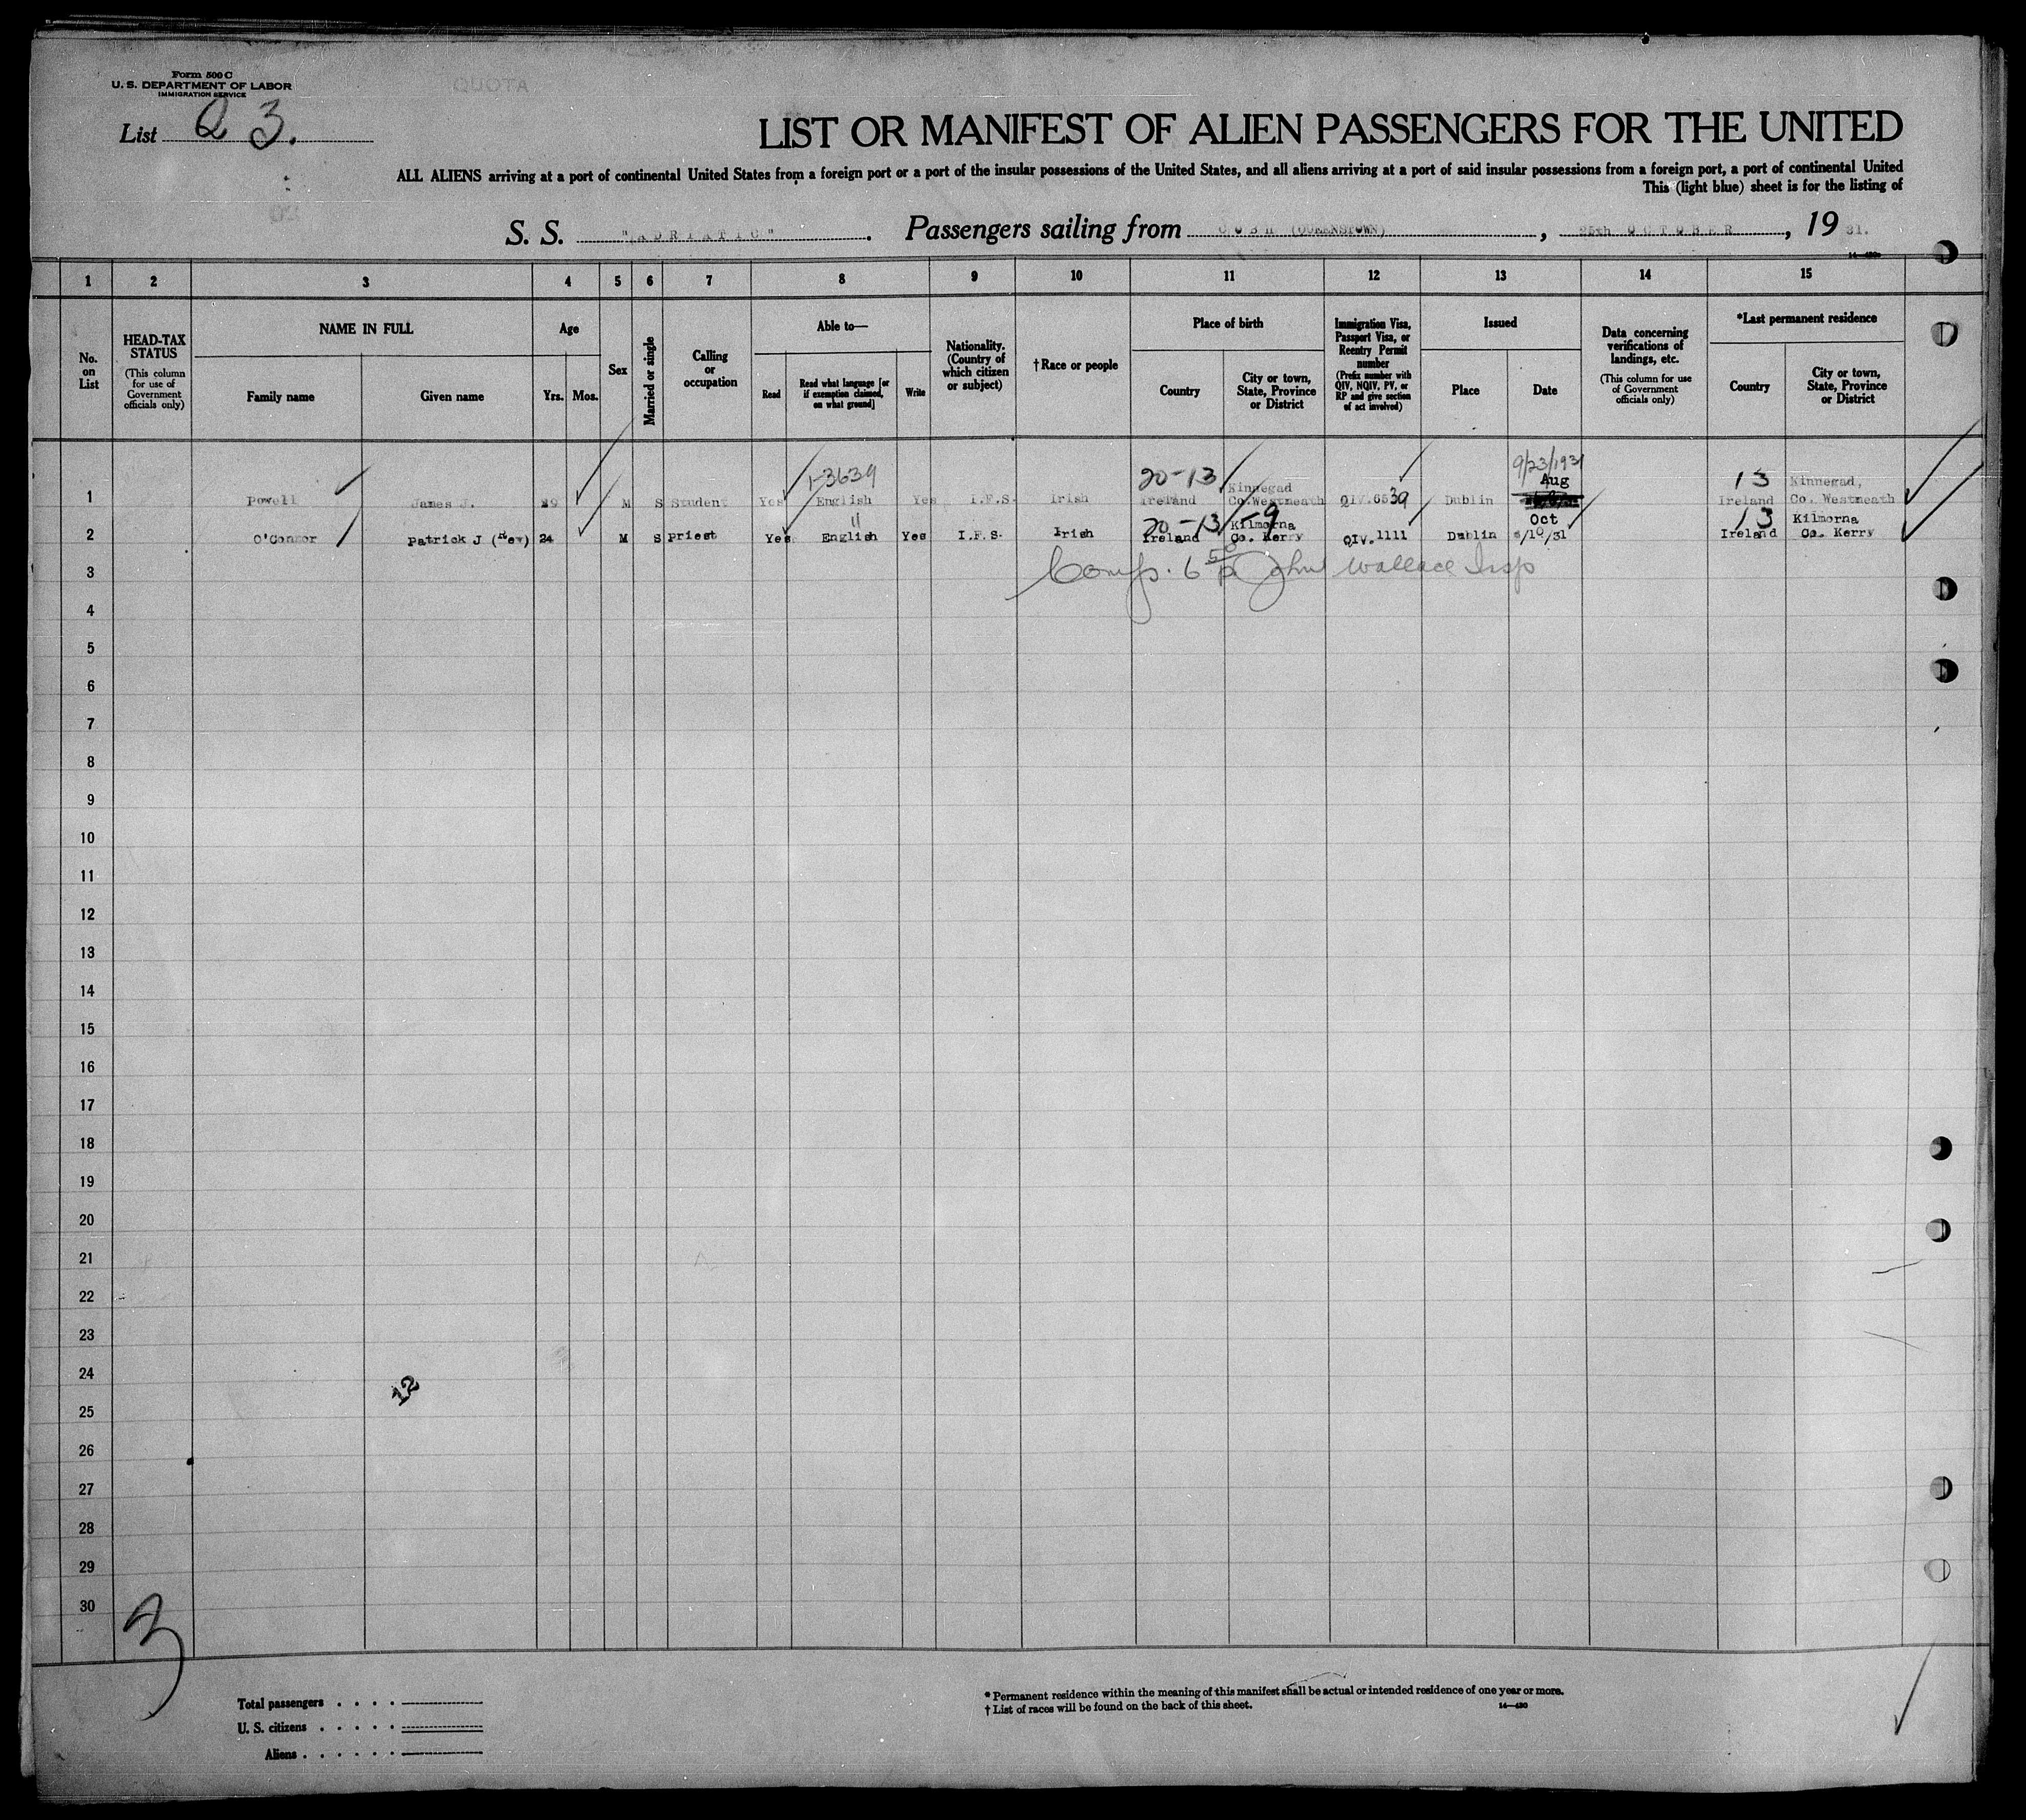 Form 500 C
U. S. DEPARTMENT OF LABOR
IMMIGRATION SERVICE
QUOTA
List 23.
LIST OR MANIFEST OF ALIEN PASSENGERS FOR THE UNITED
ALL ALIENS arriving at a port of continental United States from a foreign port or a port of the insular possessions of the United States, and all aliens arriving at a port of said insular possessions from a foreign port, a port of continental United
This (light blue) sheet is for the listing of
S. S. "ADRIATIC". Passengers sailing from COBH (QUEENSTOWN), 25th OCTOBER, 19 31.
1 2 3 4 5 6 7 8 9 10 11 12 13 14 15
No. on List
HEAD-TAX STATUS (This column for use of Government officials only)
NAME IN FULL
Family name
Given name
Age
Yrs. Mos.
Sex
Married or single
Calling or occupation
Able to—
Read
Read what language [or if exemption claimed, on what ground]
Write
Nationality. (Country of which citizen or subject)
†Race or people
Place of birth
Country
City or town, State, Province or District
Immigration Visa, Passport Visa, or Reentry Permit number (Prefix number with QIV, NQIV, PV, or RP and give section of act involved)
Issued
Place
Date
Data concerning verifications of landings, etc. (This column for use of Government officials only)
*Last permanent residence
Country
City or town, State, Province or District
1-3639 20-13 9/23/1931 13
Aug
1 Powell James J. M S Student Yes English Yes I.F.S. Irish Ireland Kinnegad Co.Westmeath QIV.6539 Dublin Ireland Kinnegad, Co. Westmeath
" 20-13 -9 Oct 13
2 O'Connor Patrick J (Rev) 24 M S Priest Yes English Yes I.F.S. Irish Ireland Kilmorna Co. Kerry QIV.1111 Dublin /10/31 Ireland Kilmorna Co. Kerry
3 Comp. 6 50 p John Wallace Insp
4
5
6
7
8
9
10
11
12
13
14
15
16
17
18
19
20
21
22
23
24
12
25
26
27
28
29
30
3
Total passengers . . . . .
U. S. citizens . . . . .
Aliens . . . . . .
* Permanent residence within the meaning of this manifest shall be actual or intended residence of one year or more.
† List of races will be found on the back of this sheet.
14—430